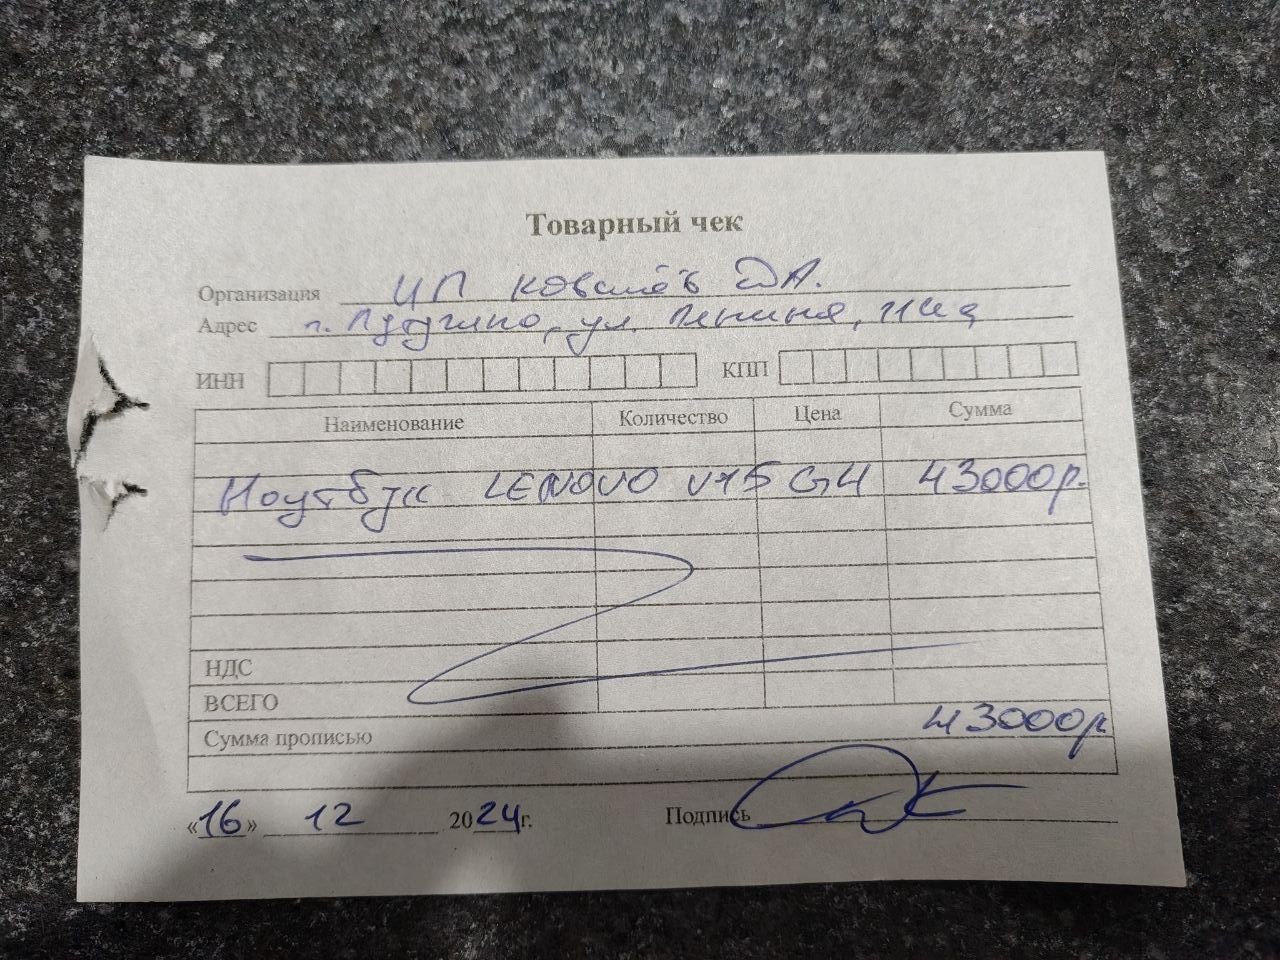 Товарный чек
Организация ИП Ковалёв Д.А.
Адрес г. Лутугино, ул. Ленина,
ИНН КПП
Наименование Количество Цена Сумма
Ноутбук LENOVO V15 G4 43000р.
НДС
ВСЕГО
43000р
Сумма прописью
«16» 12 2024г. Подпись